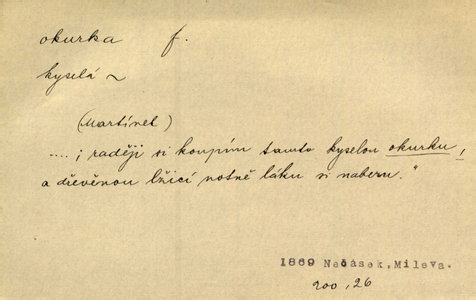 okurka f.
kyselá ~
(Martínel)
.... ; raději si koupím tamto kyselou okurku,
a dřevěnou lžicí notně láku si naberu."
1869 Nečásek, Mileva.
200, 26